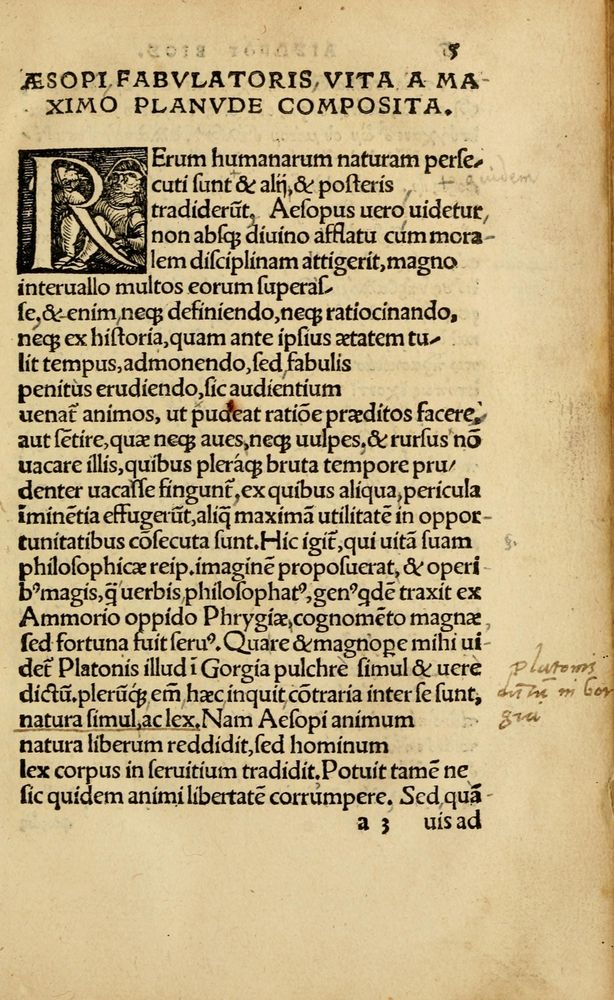 5
ÆSOPI FABVLATORIS VITA A MA-
XIMO PLANVDE COMPOSITA.
RErum humanarum naturam perse-
cuti sunt & alij, & posteris
tradiderūt. Aesopus uero uidetur,
non absq; diuino afflatu cum mora-
lem disciplinam attigerit, magno
interuallo multos eorum superas-
se, & enim, neq; definiendo, neq; ratiocinando,
neq; ex historia, quam ante ipsius ætatem tu-
lit tempus, admonendo, sed fabulis
penitùs erudiendo, sic audientium
uenat̃ animos, ut pudeat ratiōe præditos facere,
aut sētire, quæ neq; aues, neq; uulpes, & rursus nō
uacare illis, quibus pleráq; bruta tempore pru-
denter uacasse fingunt̃, ex quibus aliqua, pericula
īminētia effugerūt, aliq̃ maximā utilitatē in oppor-
tunitatibus cōsecuta sunt. Hic igit̃, qui uitā suam
philosophicæ reip. imaginē proposuerat, & operi
bꝰ magis, q̃ uerbis philosophatꝰ, genꝰ qdē traxit ex
Ammorio oppido Phrygiæ, cognomēto magnæ
sed fortuna fuit seruꝰ. Quare & magnope mihi ui
det̃ Platonis illud ī Gorgia pulchrè simul & uerè
dictū. plerūq; em̄, hæc inquit, cōtraria inter se sunt,
natura simul, ac lex. Nam Aesopi animum
natura liberum reddidit, sed hominum
lex corpus in seruitium tradidit. Potuit tamē ne
sic quidem animi libertatē corrumpere. Sed quā-
a 3 uis ad
quidem
platonis
dictū in Gor
gia